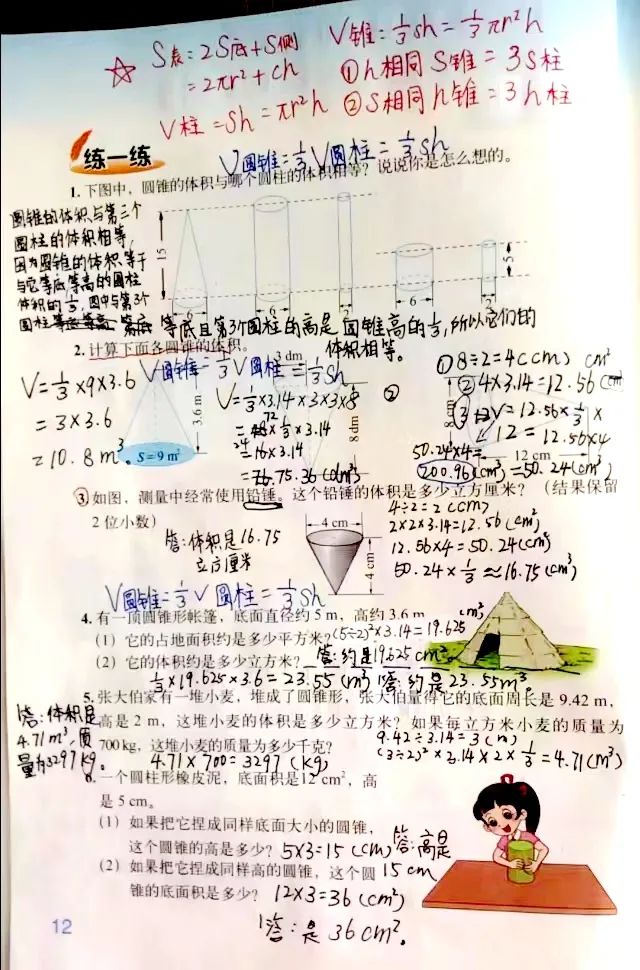 ☆ S表=2S底+S侧
=2πr²+ch
V锥=1/3sh=1/3πr²h
①h相同 S锥=3S柱
V柱=Sh=πr²h ②S相同 h锥=3h柱
V圆锥=1/3V圆柱=1/3Sh
练一练
1. 下图中，圆锥的体积与哪个圆柱的体积相等？说说你是怎么想的。
圆锥的体积与第三个
圆柱的体积相等，
因为圆锥的体积等于
与它等底等高的圆柱
体积的1/3，图中与第3个
圆柱
等底且第3个圆柱的高是圆锥高的1/3，所以它们的
体积相等。
15
6
6
2
6
5
2. 计算下面各圆锥的体积。
V圆锥=1/3V圆柱=1/3Sh
V=1/3×9×3.6
=3×3.6
=10.8m³。
3.6 m
S=9 m²
3 dm
V=1/3×3.14×3×3×8
=1/3×3.14
=16×3.14
=75.36(dm³)
8 dm
②
①8÷2=4(cm)
②4×3.14=12.56(cm
V=12.56×1/3×
12=12.56×4
=50.24(cm³)
50.24×4=
200.96(cm³)
8 cm
12 cm
③ 如图，测量中经常使用铅锤。这个铅锤的体积是多少立方厘米？（结果保留
2 位小数）
4÷2=2(cm)
2×2×3.14=12.56(cm²)
12.56×4=50.24(cm³)
50.24×1/3≈16.75(cm³)
答:体积是16.75
立方厘米
4 cm
4 cm
V圆锥=1/3V圆柱=1/3Sh
4. 有一顶圆锥形帐篷，底面直径约 5 m，高约 3.6 m
（1）它的占地面积约是多少平方米？(5÷2)²×3.14=19.625
（2）它的体积约是多少立方米？答:约是19.625cm²
1/3×19.625×3.6=23.55(m³) 答:约是23.55m³。
5. 张大伯家有一堆小麦，堆成了圆锥形，张大伯量得它的底面周长是 9.42 m，
高是 2 m，这堆小麦的体积是多少立方米？如果每立方米小麦的质量为
700 kg，这堆小麦的质量为多少千克？
9.42÷3.14=3(m)
(3÷2)²×3.14×2×1/3=4.71(m³)
4.71×700=3297(kg)
答:体积是
4.71m³，质
量为3297kg。
6. 一个圆柱形橡皮泥，底面积是12 cm²，高
是 5 cm。
（1）如果把它捏成同样底面大小的圆锥，
这个圆锥的高是多少？5×3=15(cm) 答:高是
15cm
（2）如果把它捏成同样高的圆锥，这个圆
锥的底面积是多少？12×3=36(cm²)
答:是36cm²。
12